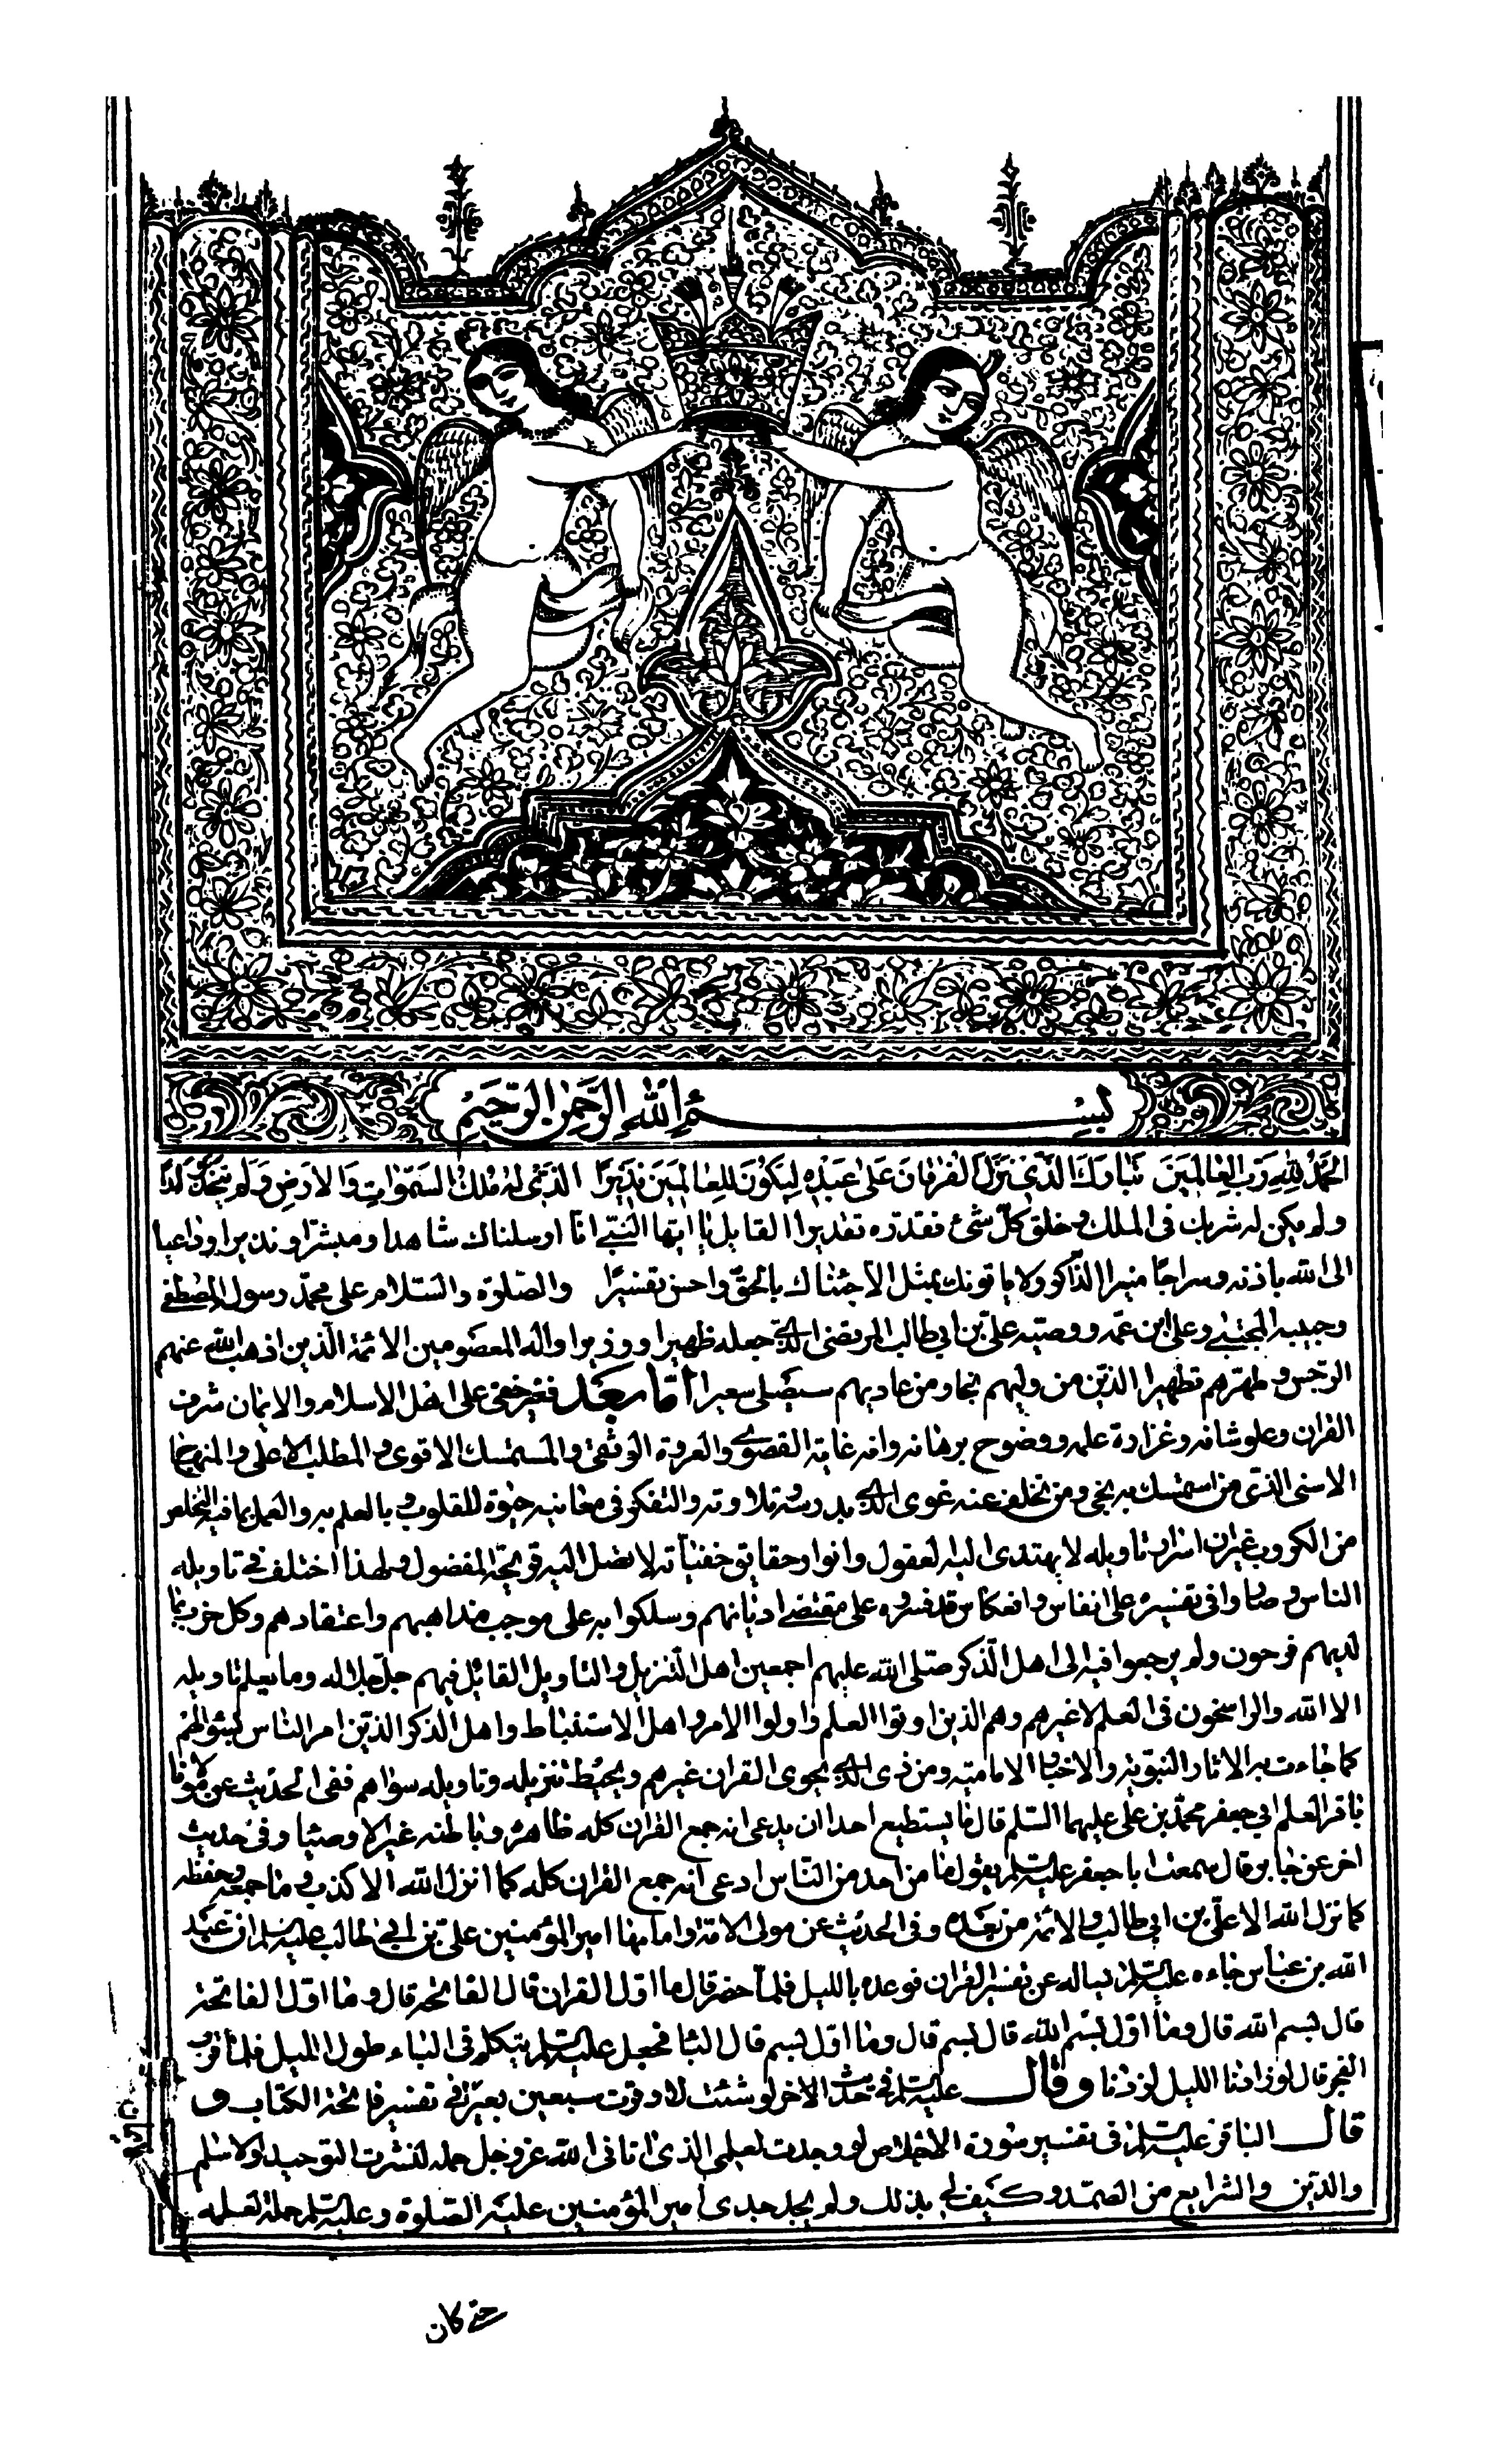 بسم الله الرحمن الرحيم
الحمد لله رب العالمين تبارك الذي نزل الفرقان على عبده ليكون للعالمين نذيرا الذي له ملك السموات والارض ولم يتخذ ولدا
ولم يكن له شريك في الملك وخلق كل شئ فقدره تقديرا القايل يا ايها النبي انا ارسلناك شاهدا ومبشرا ونذيرا وداعيا
الى الله باذنه وسراجا منيرا الذاكر ولا ياتونك بمثل الا جئناك بالحق واحسن تفسيرا والصلوة والسلام على محمد رسوله المصطفى
وحبيبه المجتبى وعلى ابن عمه ووصيه علي بن ابي طالب المرتضى الذي جعله ظهيرا ووزيرا واله المعصومين الائمة الذين اذهب الله عنهم
الرجس وطهرهم تطهيرا الذين من وليهم نجا ومن عاديهم سيصلى سعيرا اما بعد فغير خفي على اهل الاسلام والايمان شرف
القران وعلو شانه وغزارة علمه ووضوح برهانه وانه غاية القصوى والعروة الوثقى والمستمسك الاقوى والمطلب الاعلى والمنهاج
الاسنى الذي من استمسك به نجى ومن تخلف عنه غوى الذي بدرسه وتلاوته والتفكر في معانيه حيوة للقلوب وبالعلم به والعمل بما فيه التخلص
من الكروب غير ان اسرار تاويله لا يهتدى اليه العقول وانوار حقايق خفياته لا تصل اليه قريحة المفضول ولهذا اختلف في تاويله
الناس وصاروا في تفسيره على انفاس وانعكاس قد فسروه على مقتضى اديانهم وسلكوا به على موجب مذاهبهم واعتقادهم وكل حزب بما
لديهم فرحون ولم يرجعوا فيه الى اهل الذكر صلى الله عليهم اجمعين اهل التنزيل والتاويل القائل فيهم جل جلاله وما يعلم تاويله
الا الله والراسخون في العلم لا غيرهم وهم الذين اوتوا العلم واولوا الامر واهل الاستنباط واهل الذكر الذين امر الناس بسؤالهم
كما جاءت به الاثار النبوية والاخبار الامامية ومن ذي الذي يحوى القران غيرهم ويحيط بتنزيله وتاويله سواهم ففي الحديث عن مولانا
باقر العلم ابي جعفر محمد بن علي عليهما السلم قال ما يستطيع احد ان يدعى انه جمع القران كله ظاهره وباطنه غير الاوصيا وفي حديث
اخر عن جابر قال سمعت ابا جعفر عليه السلم يقول ما من احد من الناس ادعى انه جمع القران كله كما انزل الله الا كذب وما جمعه وحفظه
كما نزل الله الا علي بن ابي طالب والائمة من بعده وفي الحديث عن مولى الامة وامامها امير المؤمنين علي بن ابي طالب عليه السلم ان عبد
الله بن عباس جاءه عليه السلم يساله عن تفسير القران فوعده بالليل فلما حضر قال ما اول القران قال الفاتحة قال وما اول الفاتحة
قال بسم الله قال وما اول بسم الله قال بسم قال وما اول بسم قال البا فجعل عليه السلم يتكلم في الباء طول الليل فلما قرب
الفجر قال لو زادنا الليل لزدنا وقال عليه السلم في حديث الاخر لو شئت لاوقرت سبعين بعيرا في تفسير فاتحة الكتاب و
قال الباقر عليه السلم في تفسير سورة الاخلاص لو وجدت لعلمي الذي اتاني الله عز وجل حملة لنشرت التوحيد والاسلام
والدين والشرايع من الصمد وكيف لي بذلك ولم يجد جدي امير المؤمنين عليه الصلوة وعليه السلم حملة لعلمه
حتى كان